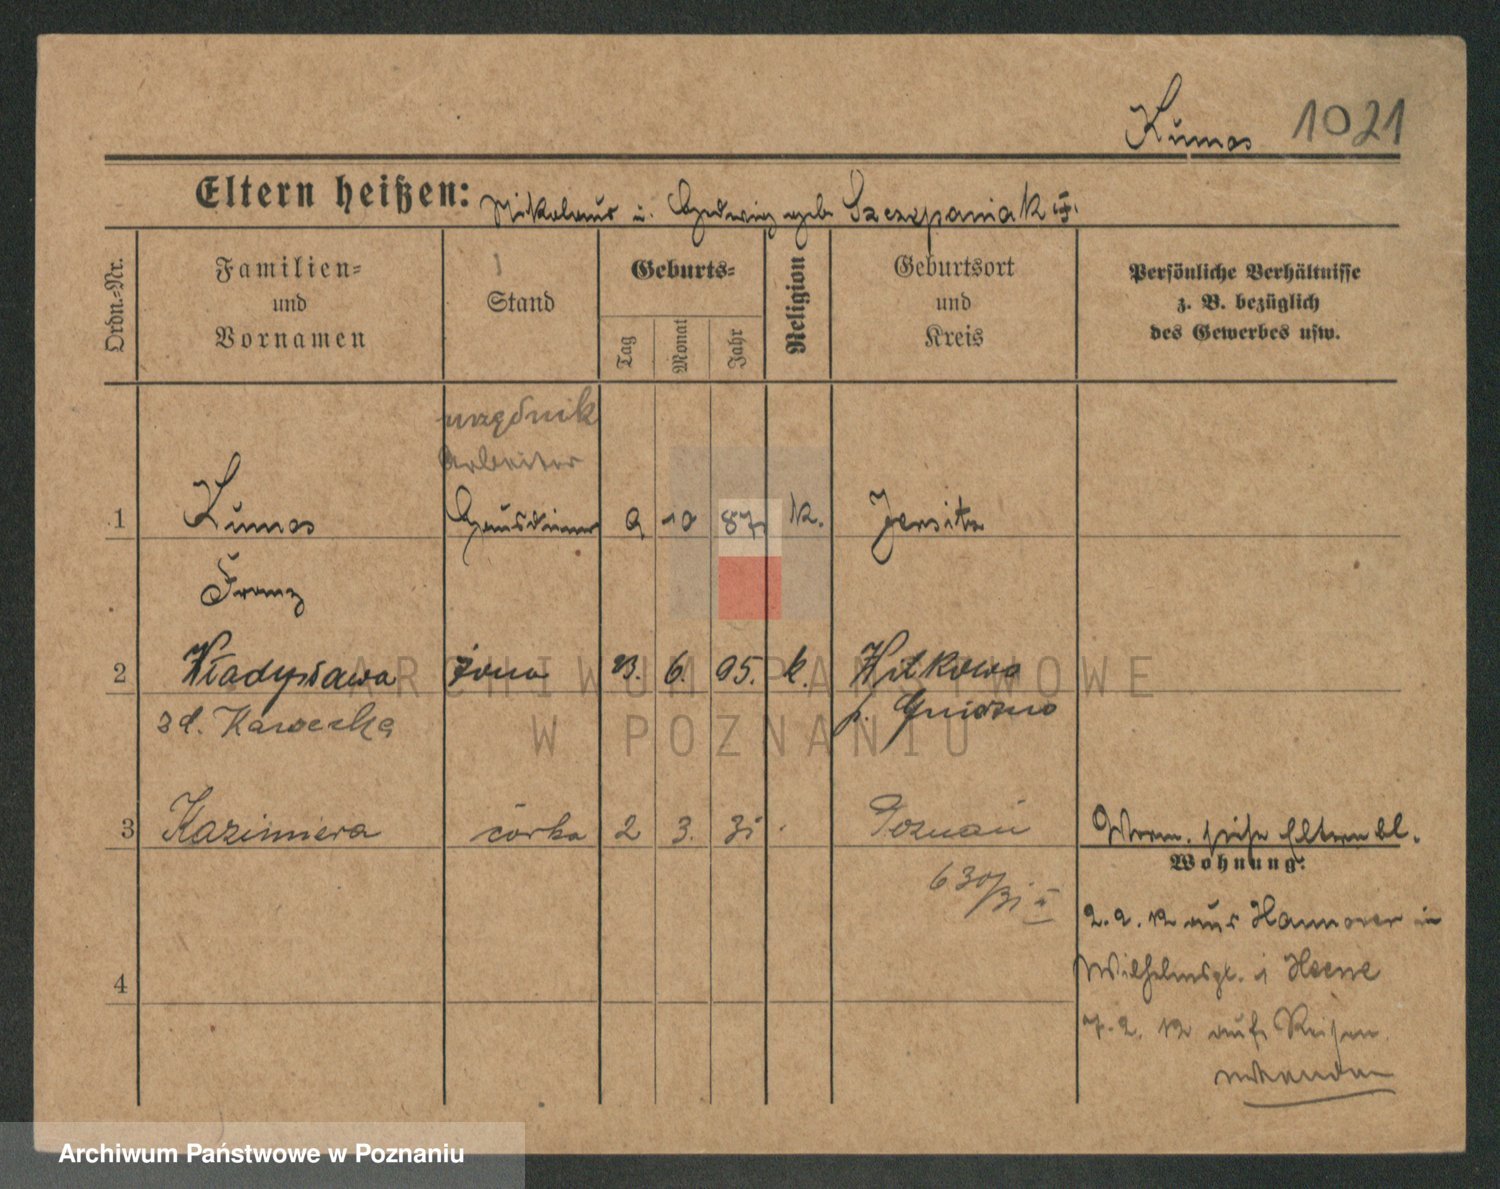 Kumos 1021
Eltern heißen: Nikolaus u. Hedwig geb. Szczepaniak
Ordn.-Nr.
Familien-
und
Vornamen
Stand
Geburts-
Tag
Monat
Jahr
Religion
Geburtsort
und
Kreis
Persönliche Verhältnisse
z. B. bezüglich
des Gewerbes usw.
urzędnik
Arbeiter
1 Kumos Hausdiener 9 10 87 k. Jersitz
Franz
2 Władysława żona 6. 95. k. Witkowo
zd. Kaweczka p. Gniezno
3 Kazimiera córka 2 3. 31 Poznań
Verm. siehe Elternbl.
Wohnung:
630/31
2. 2. 12 aus Hannover in
Wilhelmspl.
4
7. 2. 12 auf Reisen
ARCHIWUM PAŃSTWOWE
W POZNANIU
Archiwum Państwowe w Poznaniu